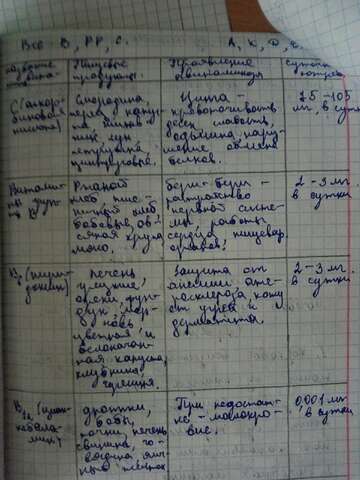 Вод B, PP, C. А, К, Д, Е.
название вита-
Пищевые продукты
Проявление авитаминоза
суточн потреб
C (аскор-
биновая
кислота)
Смородина,
перец, капус-
лук
петрушка,
цитрусовые.
Цинга -
кровоточивость
десен, слабость,
одышка, нару-
шение обмена
белков.
75 - 105
мг, в сутки
Витами-
ны груп-
Ржаной
хлеб, пше-
ничный хлеб
бобовые, ов-
сяная крупа
бери-бери -
расстройство
нервной систе-
мы, работы
сердца, пищевар
органов.
2 - 3 мг
в сутки
B6 (пири-
доксин)
печень
орехи, фун-
дук, мор-
ковь,
цветная и
белокочан-
ная капуста,
клубника
черешня.
Защита от
анемии, ате-
росклероза, кожу
от угрей и
дерматита.
2 - 3 мг.
в сутки
B12 (циан-
кобала-
мин)
дрожжи,
бобы,
почки, печень
свинина, го-
вядина, яич-
При недостат-
ке - малокро-
вие.
0,001 мг
в сутки